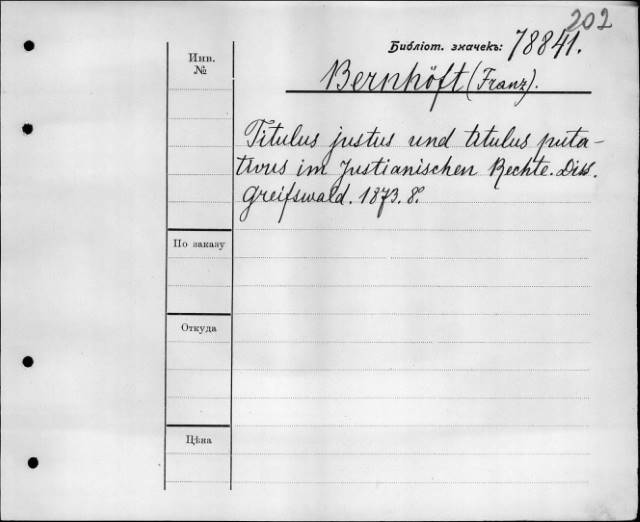 202
Библіот. значекъ: 78841.
Инв.
№
Bernhöft (Franz).
Titulus justus und titulus puta-
tivus im Justianischen Rechte. Diss.
Greifswald. 1873. 8°.
По заказу
Откуда
Цѣна